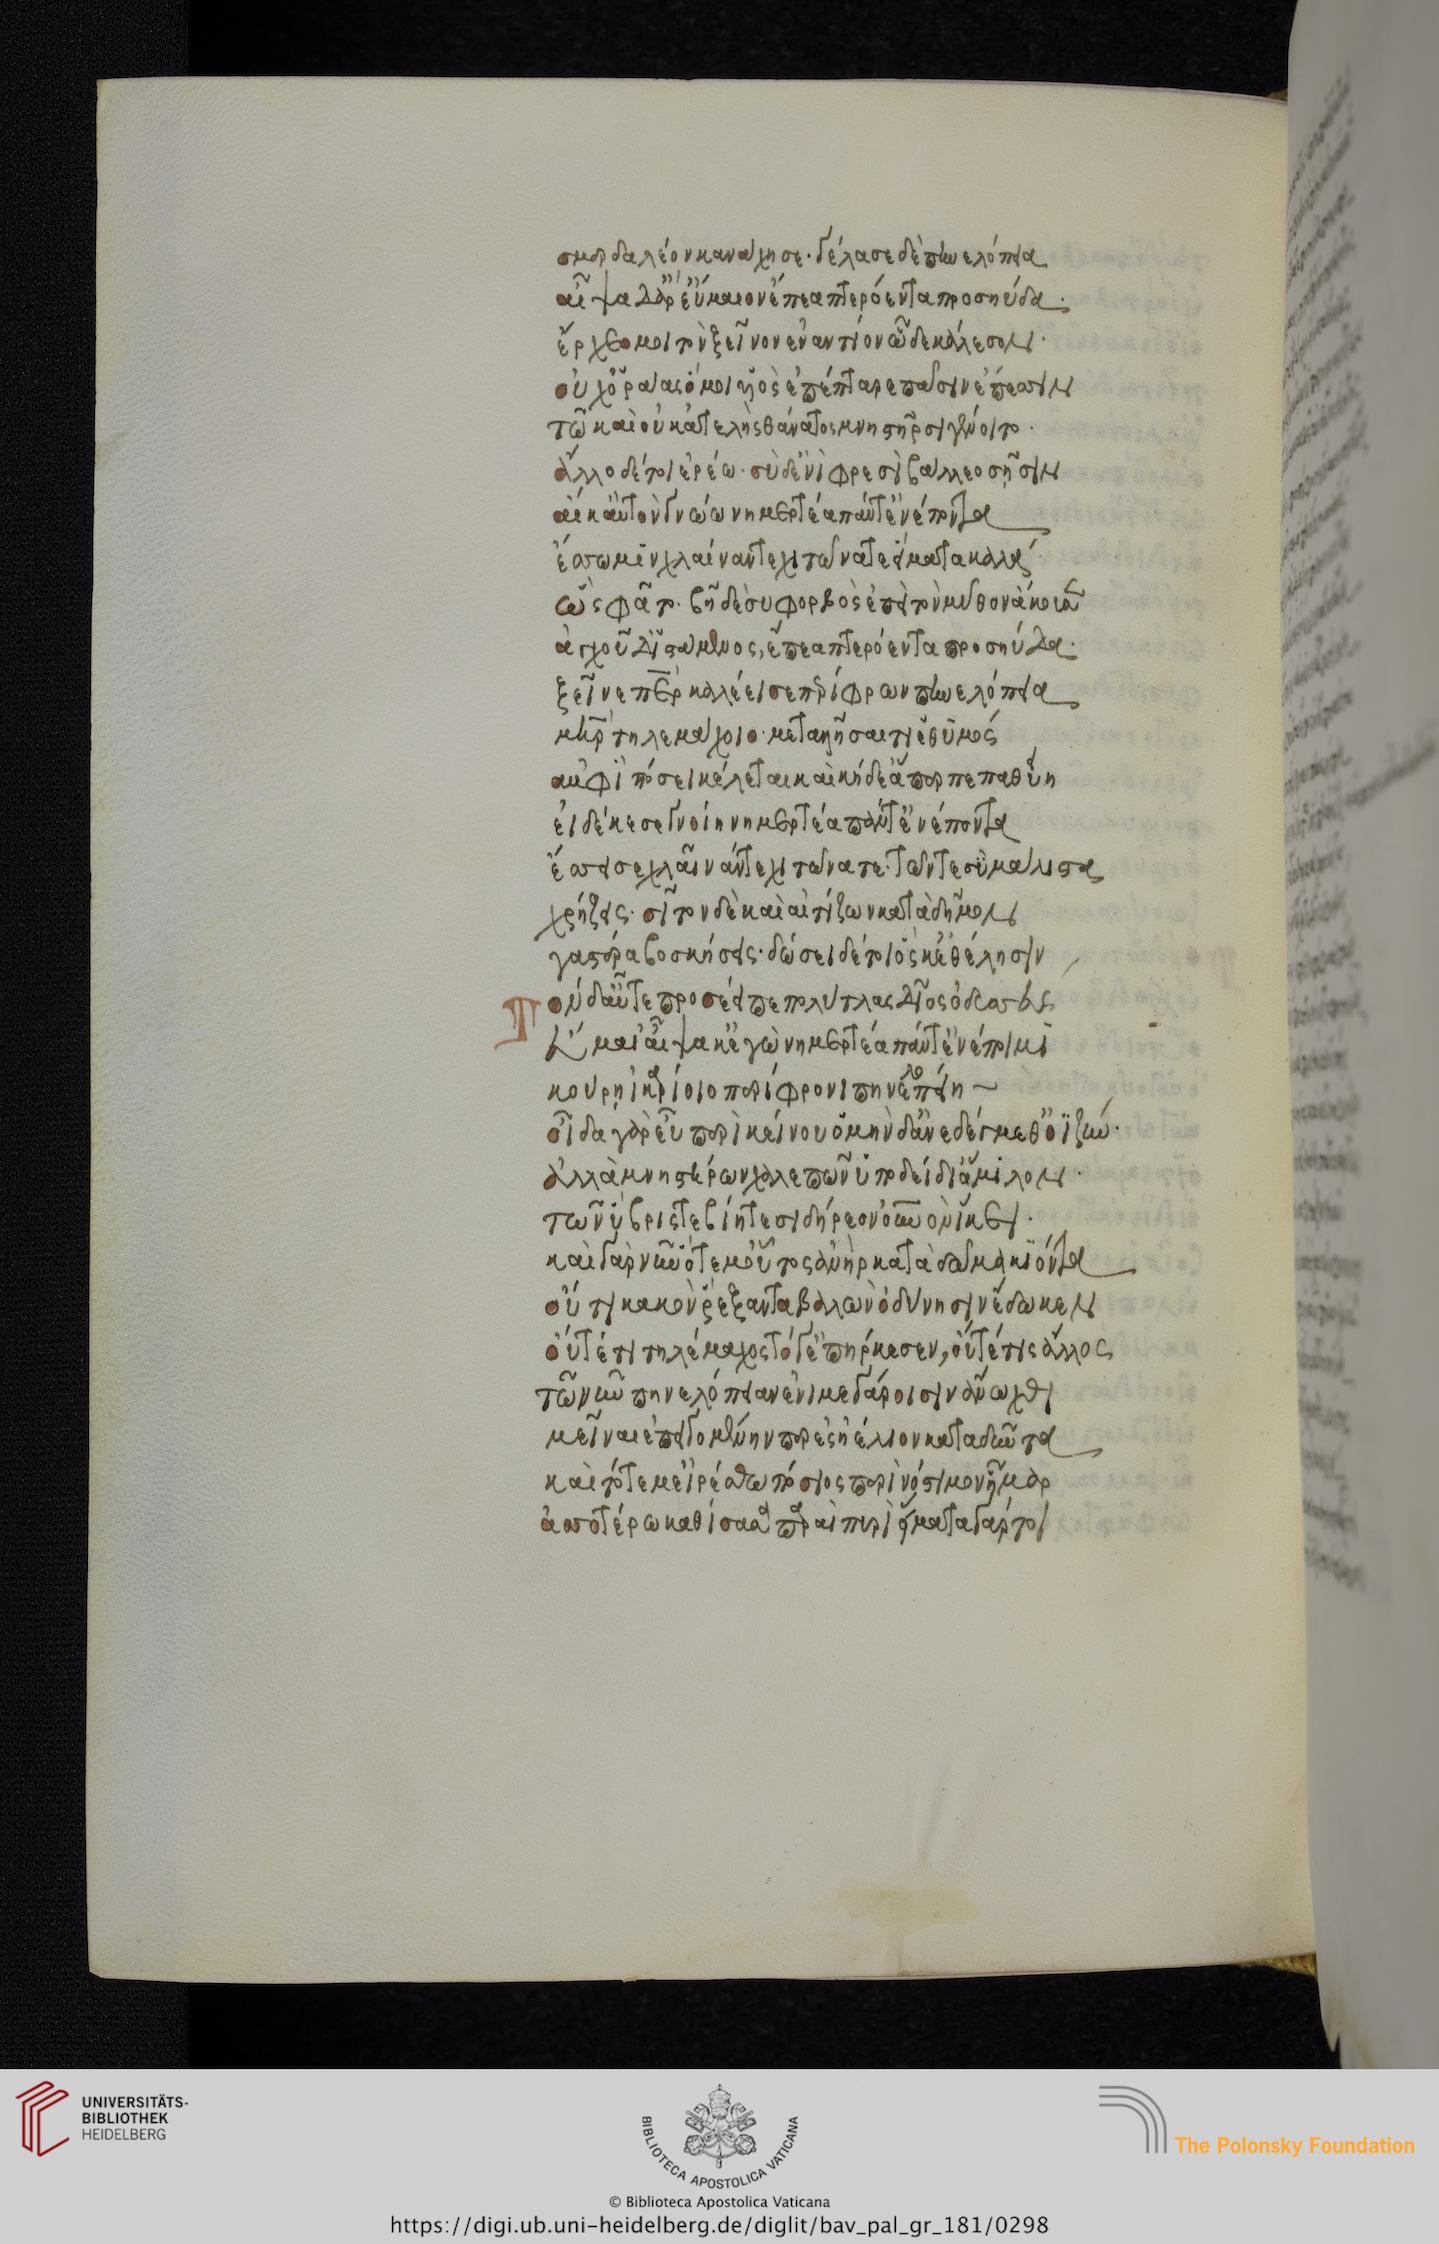 σμερδαλέον κανάχησε· γέλασε δὲ πηνελόπεια
αἶψα δ' ἄρ' εὔμαιον ἔπεα πτερόεντα προσηύδα·
ἔρχεό μοι τὸν ξεῖνον ἐναντίον ὧδε κάλεσον·
οὐχ ὁράας ὅ μοι υἱὸς ἐπέπταρε πᾶσιν ἔπεσιν
τῶ καὶ οὐκ ἀτελὴς θάνατος μνηστῆρσι γένοιτο·
ἄλλο δέ τοι ἐρέω· σὺ δ' ἐνὶ φρεσὶ βάλλεο σῆσιν
αἴ κ' αὐτὸν γνώω νημερτέα πάντ' ἐνέποντα
ἕσσω μιν χλαῖνάν τε χιτῶνά τε εἵματα καλά·
ὣς φάτο· βῆ δὲ συφορβὸς ἐπεὶ τὸν μῦθον ἄκουσεν
ἀγχοῦ δ' ἱστάμενος, ἔπεα πτερόεντα προσηύδα·
ξεῖνε πάτερ καλέει σε περίφρων πηνελόπεια
μήτηρ τηλεμάχοιο· μεταλλῆσαί τι ἑ θυμός
ἀμφὶ πόσει κέλεται καὶ κήδεά περ πεπαθυίη
εἰ δέ κέ σε γνοίη νημερτέα πάντ' ἐνέποντα
ἕσσει σε χλαῖνάν τε χιτῶνά τε· τῶν τε σὺ μάλιστα
χρήζεις· σῖτον δὲ καὶ αἰτίζων κατὰ δῆμον
γαστέρα βοσκήσεις· δώσει δέ τοι ὅς κ' ἐθέλησιν
Τ ὸν δ' αὖτε προσέειπε πολύτλας δῖος ὀδυσσεύς
εὔμαι' αἶψά κ' ἐγὼ νημερτέα πάντ' ἐνέποιμι
κούρη ἰκαρίοιο περίφρονι πηνελοπείη
οἶδα γὰρ εὖ περὶ κείνου ὁμὴν δ' ἀνεδέγμεθ' ὀϊζύν·
ἀλλὰ μνηστήρων χαλεπῶν ὑποδείδι' ὅμιλον·
τῶν ὕβρις τε βίη τε σιδήρεον οὐρανὸν ἵκει·
καὶ γὰρ νῦν ὅτε μ' οὗτος ἀνὴρ κατὰ δῶμα κιόντα
οὔ τι κακὸν ῥέξαντα βαλὼν ὀδύνησιν ἔδωκεν
οὔτέ τι τηλέμαχος τό γ' ἐπήρκεσεν, οὔτέ τις ἄλλος
τῶ νῦν πηνελόπειαν ἐνὶ μεγάροισιν ἄνωχθι
μεῖναι ἐπειγομένην περ ἐς ἠέλιον καταδῦντα
καὶ τότε μ' εἰρέσθω πόσιος πέρι νόστιμον ἦμαρ
ἀσσοτέρω καθίσασα παραὶ πυρί εἵματα γάρ τοι
UNIVERSITÄTS-
BIBLIOTHEK
HEIDELBERG
BIBLIOTECA APOSTOLICA VATICANA
The Polonsky Foundation
© Biblioteca Apostolica Vaticana
https://digi.ub.uni-heidelberg.de/diglit/bav_pal_gr_181/0298